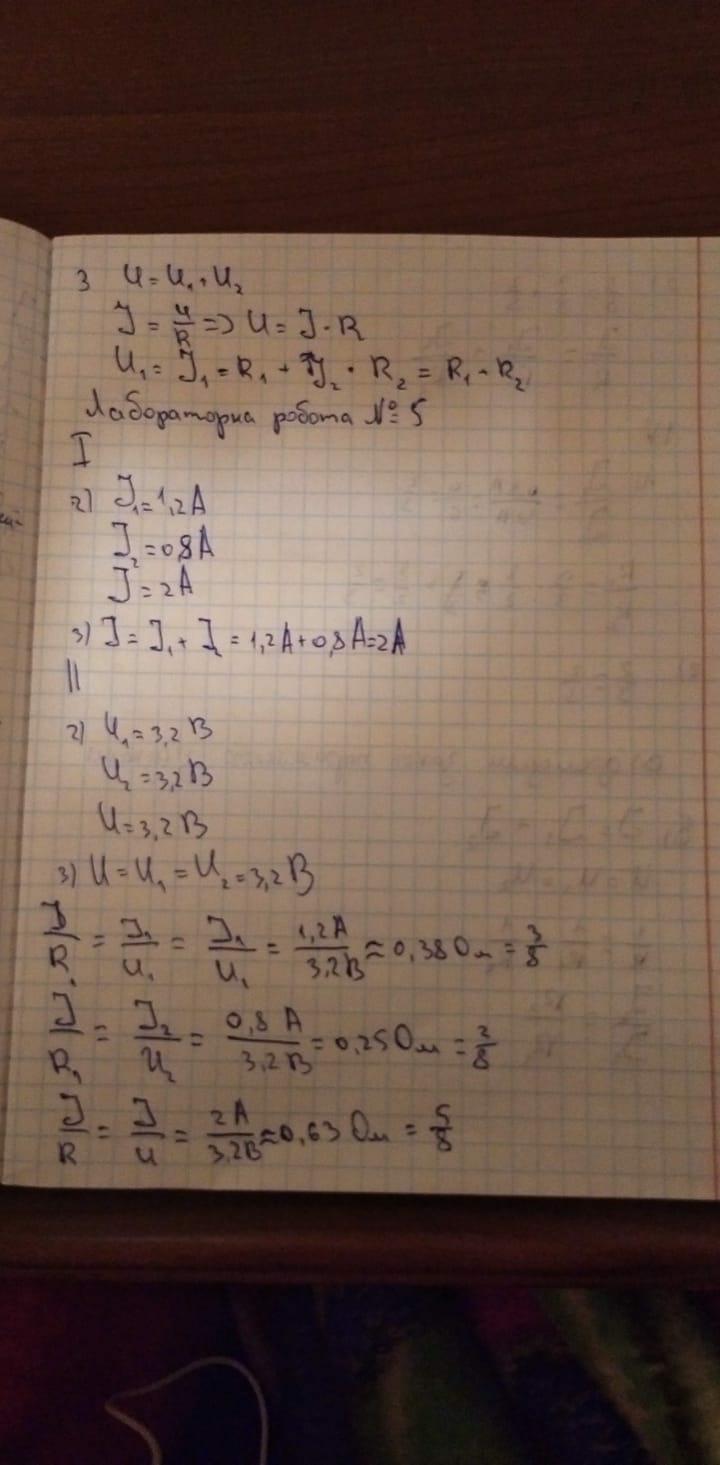 3 U = U₁ + U₂
J = U/R => U = J · R
U₁ = J₁ = R₁ + J₂ · R₂ = R₁ - R₂
Лабораторна робота № 5
I
2) J₁ = 1,2 A
J₂ = 0,8 A
J = 2 A
3) J = J₁ + J₂ = 1,2 A + 0,8 A = 2 A
II
2) U₁ = 3,2 В
U₂ = 3,2 В
U = 3,2 В
3) U = U₁ = U₂ = 3,2 В
J/R₁ = J₁/U₁ = J₁/U₁ = 1,2 A/3,2 В ≈ 0,38 Ом = 3/8
J/R₁ = J₂/U₂ = 0,8 A/3,2 В = 0,25 Ом = 2/8
J/R = J/U = 2 A/3,2 В ≈ 0,63 Ом = 5/8